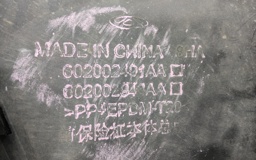 MADE IN CHINA CHA
602002491AA
602002840AA
>PP+EPDM-T20
保险杠本体